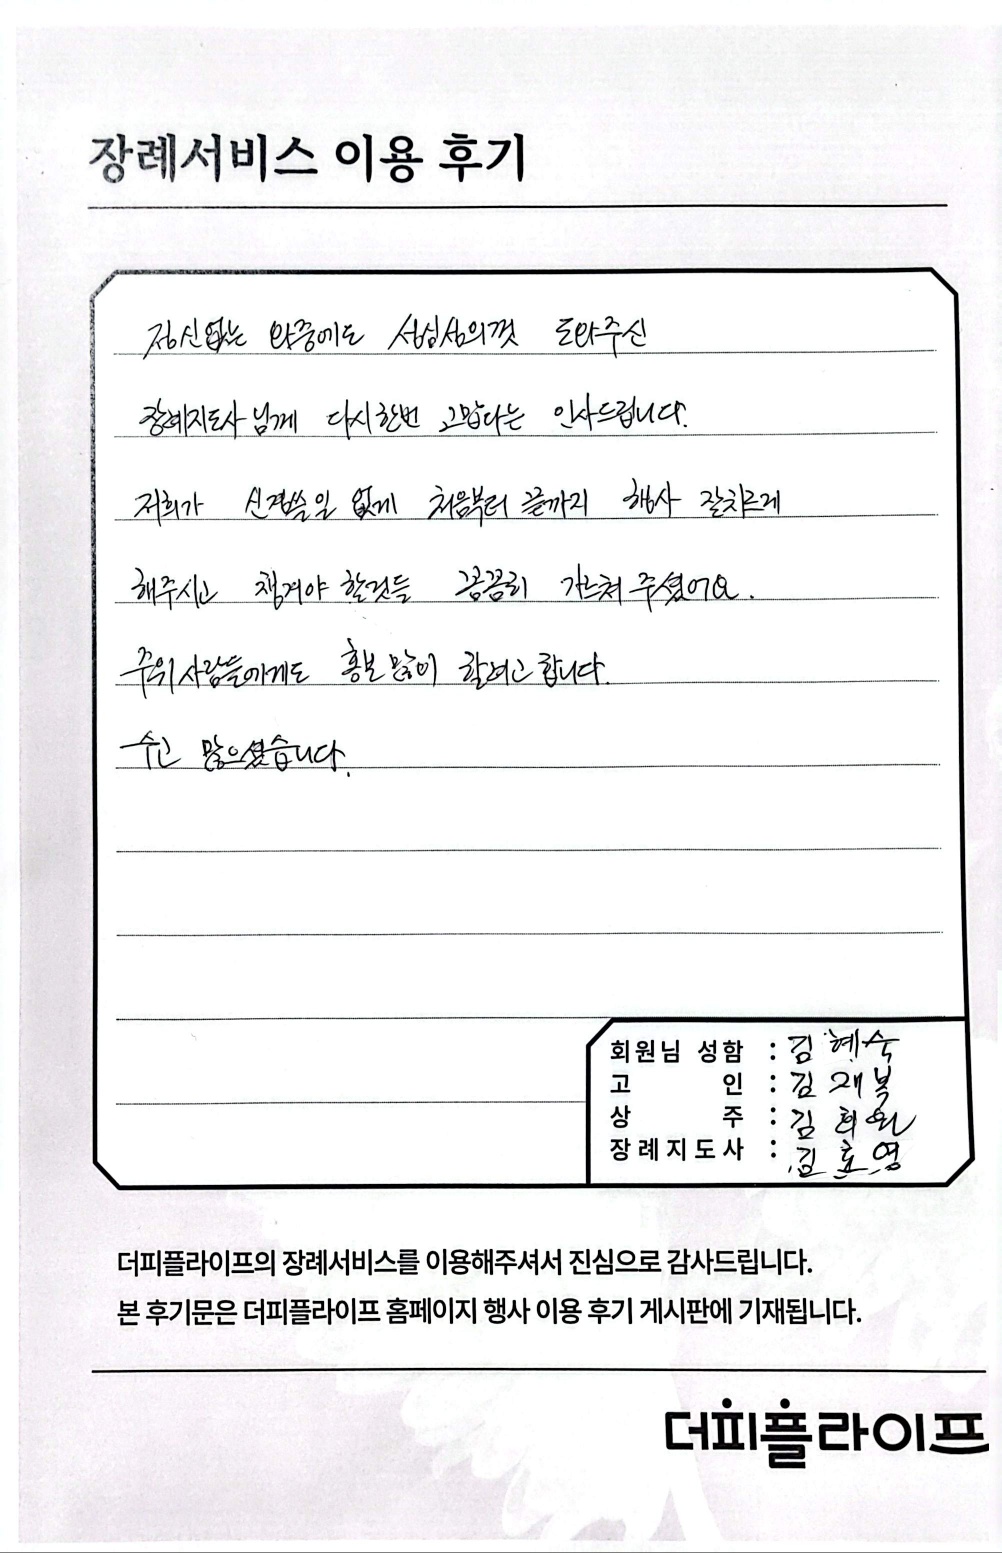 장례서비스 이용 후기
정신없는 와중에도 성심성의껏 도와주신
장례지도사님께 다시한번 고맙다는 인사드립니다.
저희가 신경쓸일 없게 처음부터 끝까지 행사 잘치르게
해주시고 챙겨야 할것들 꼼꼼히 가르쳐 주셨어요.
주위사람들에게도 홍보 많이 할려고 합니다.
수고 많으셨습니다.
회원님 성함 : 김혜숙
고 인 : 김재복
상 주 : 김희완
장례지도사 : 김호영
더피플라이프의 장례서비스를 이용해주셔서 진심으로 감사드립니다.
본 후기문은 더피플라이프 홈페이지 행사 이용 후기 게시판에 기재됩니다.
더피플라이프